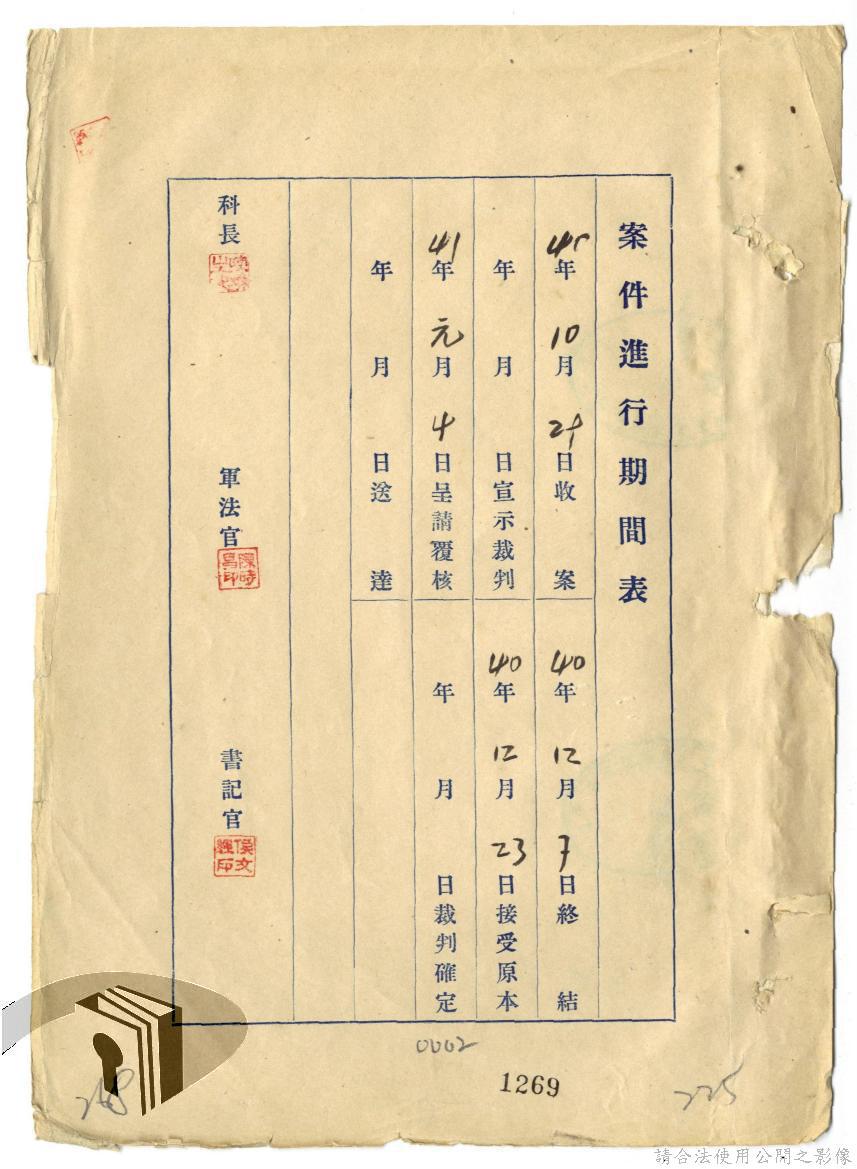 案件進行期間表
40年10月29日收案
40年12月7日終結
年月日宣示裁判
40年12月23日接受原本
41年元月4日呈請覆核
年月日裁判確定
年月日送達
科長
軍法官
陳時昌印
書記官
侯文
0002
1269
225
請合法使用公開之影像